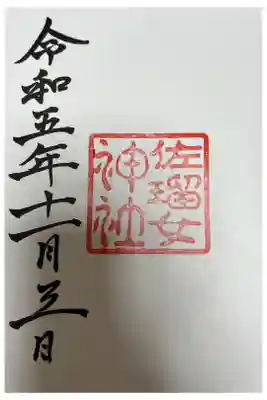 佐瑠女
神社
令和五年十一月 日